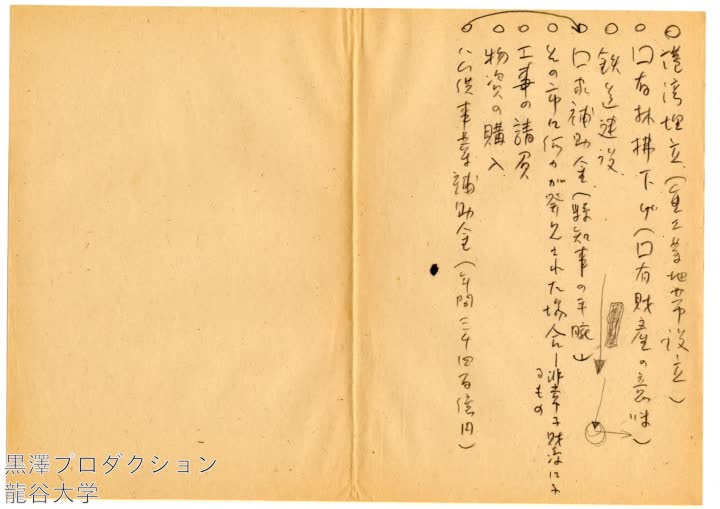 ○港湾埋立(重工業地帯設立)
○口有林拂下げ(口有財産の意味)
○鉄道建設
○口庫補助金(縣知事の手腕)
○その市に何かが発見された場合—非常な財源になるもの
○工事の請負
○物資の購入
○公供事業補助金(年間三千四百億円)
黒澤プロダクション
龍谷大学